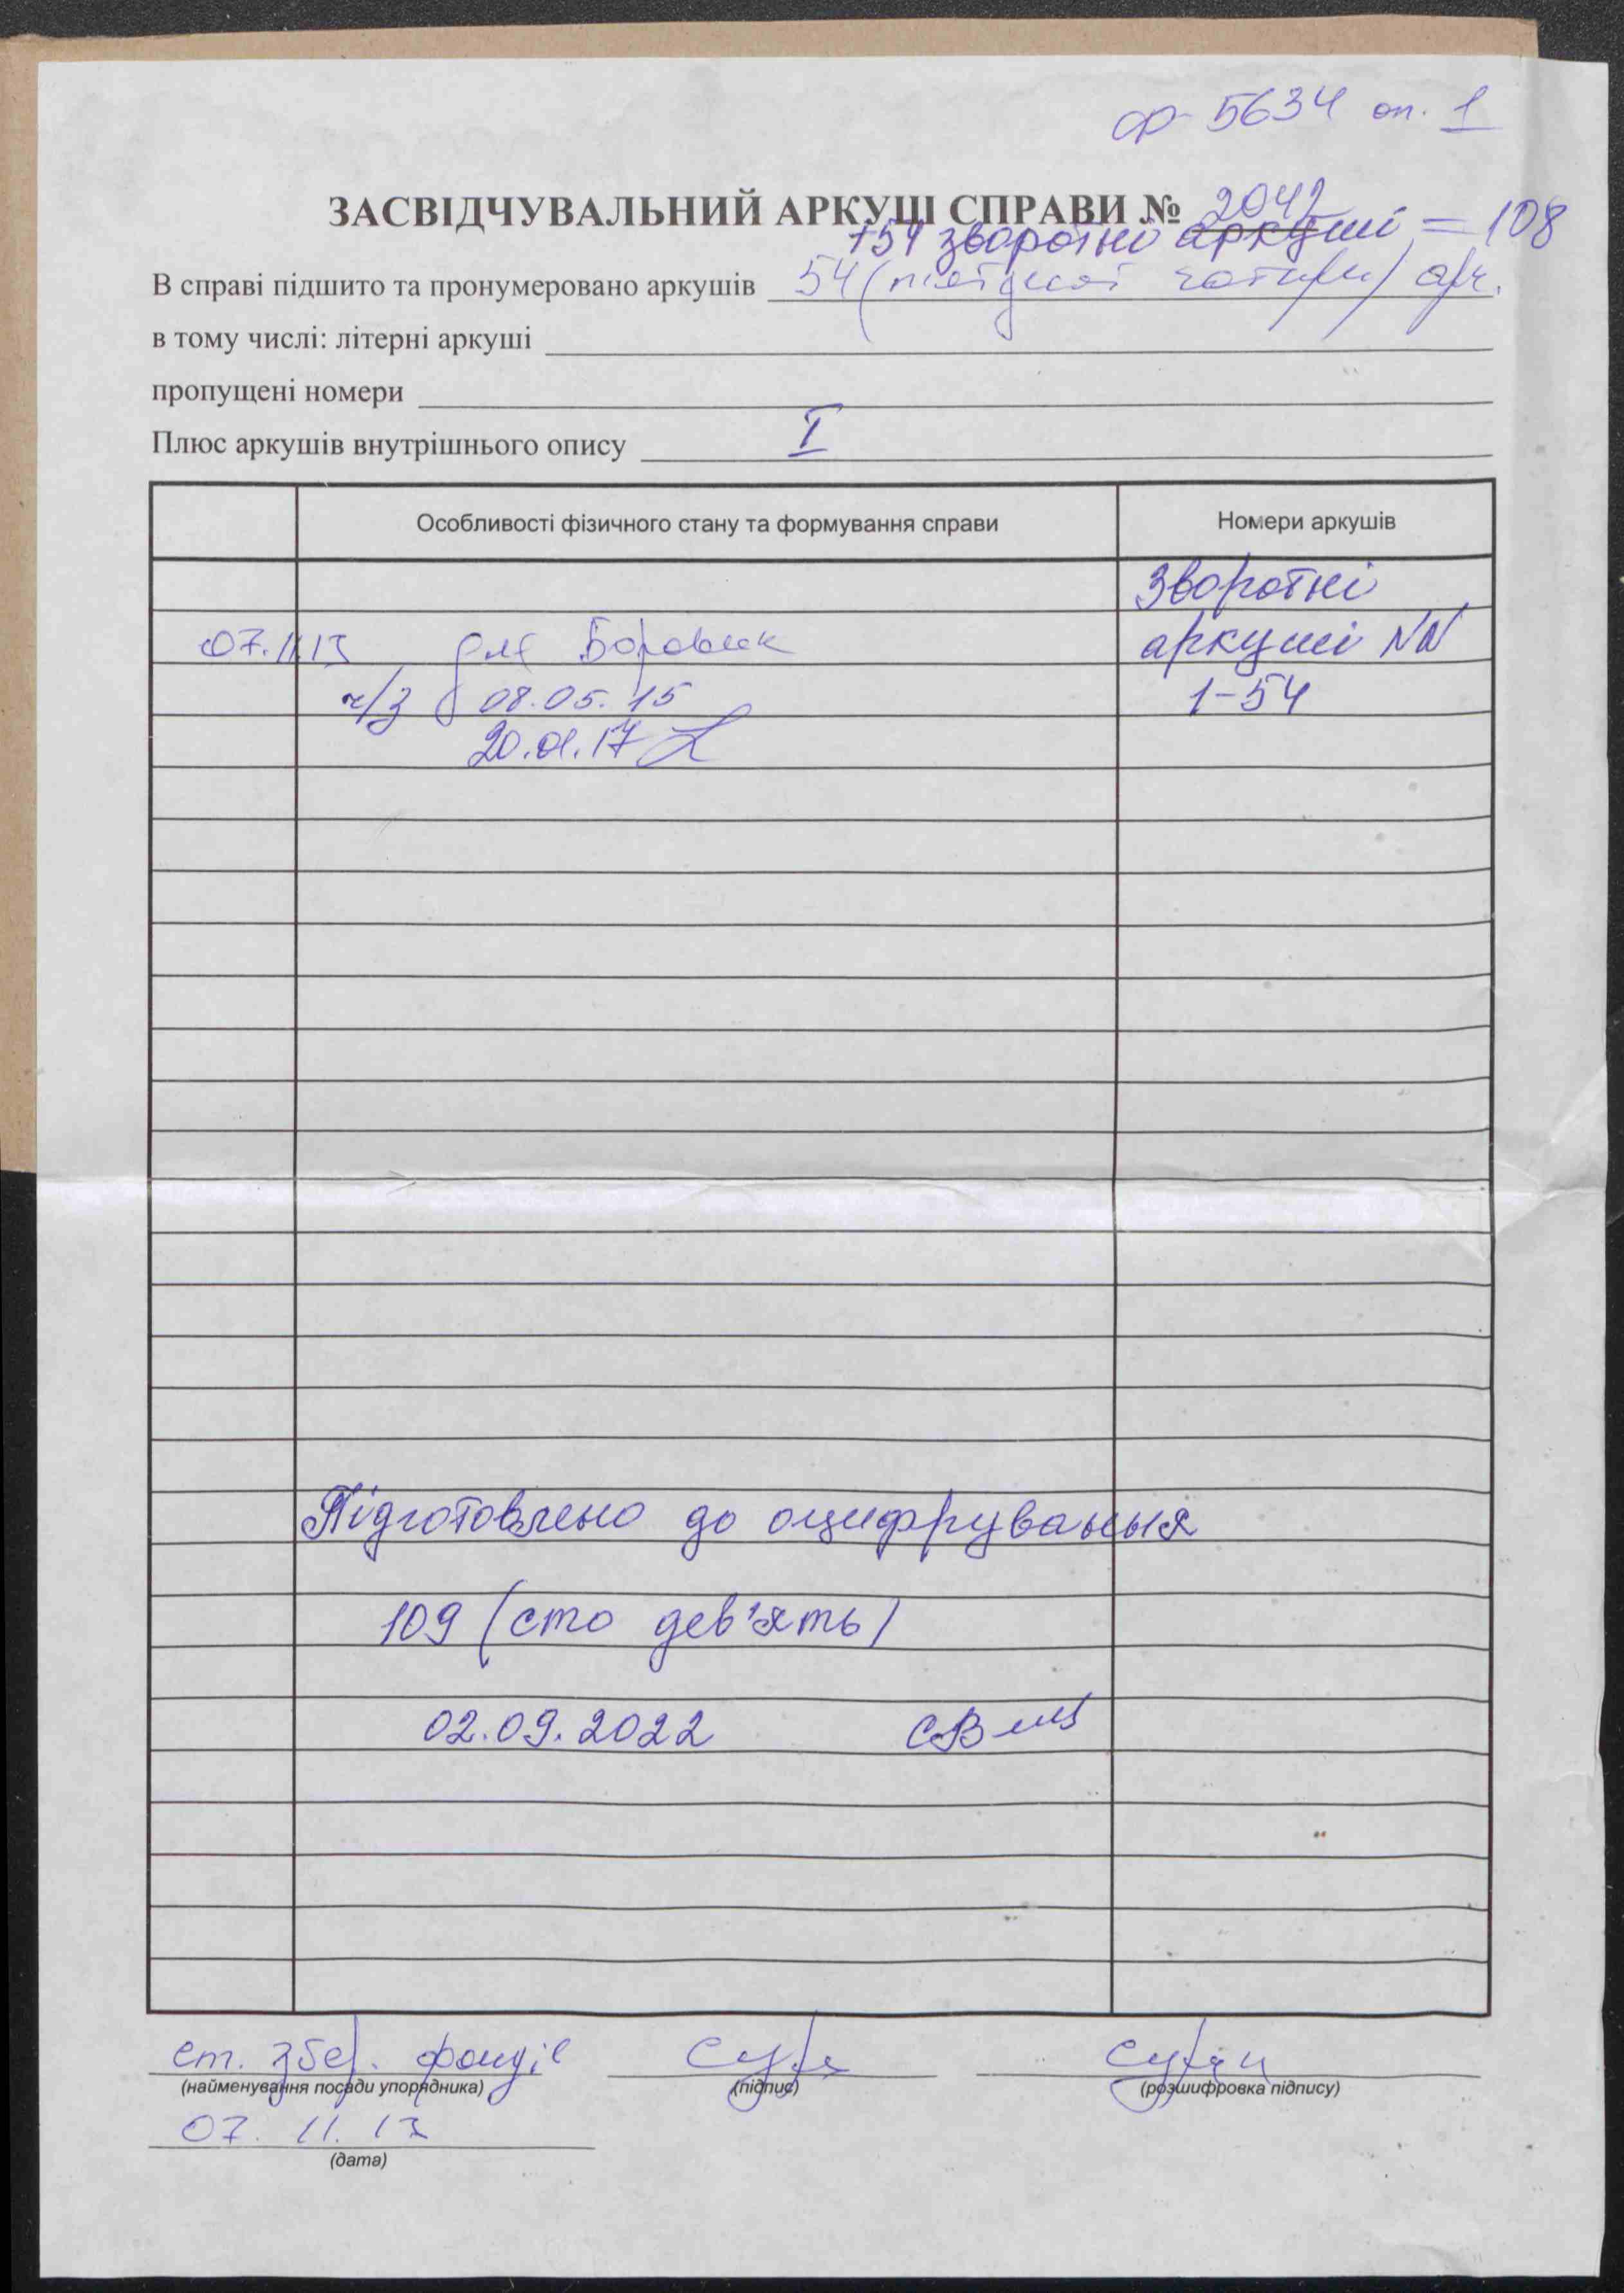 ф 5634 оп. 1
ЗАСВІДЧУВАЛЬНИЙ АРКУШ СПРАВИ № 2042
+54 зворотні аркуші = 108
В справі підшито та пронумеровано аркушів 54 (п'ятдесят чотири) арк.
в тому числі: літерні аркуші
пропущені номери
Плюс аркушів внутрішнього опису I
Особливості фізичного стану та формування справи
Номери аркушів
Зворотні
07.11.13 для Боровик
аркуші NN
ч/з 08.05.15
1-54
20.01.17
Підготовлено до оцифрування
109 (сто дев'ять)
02.09.2022
ст. збер. фондів
(найменування посади упорядника)
(підпис)
(розшифровка підпису)
07. 11. 13
(дата)